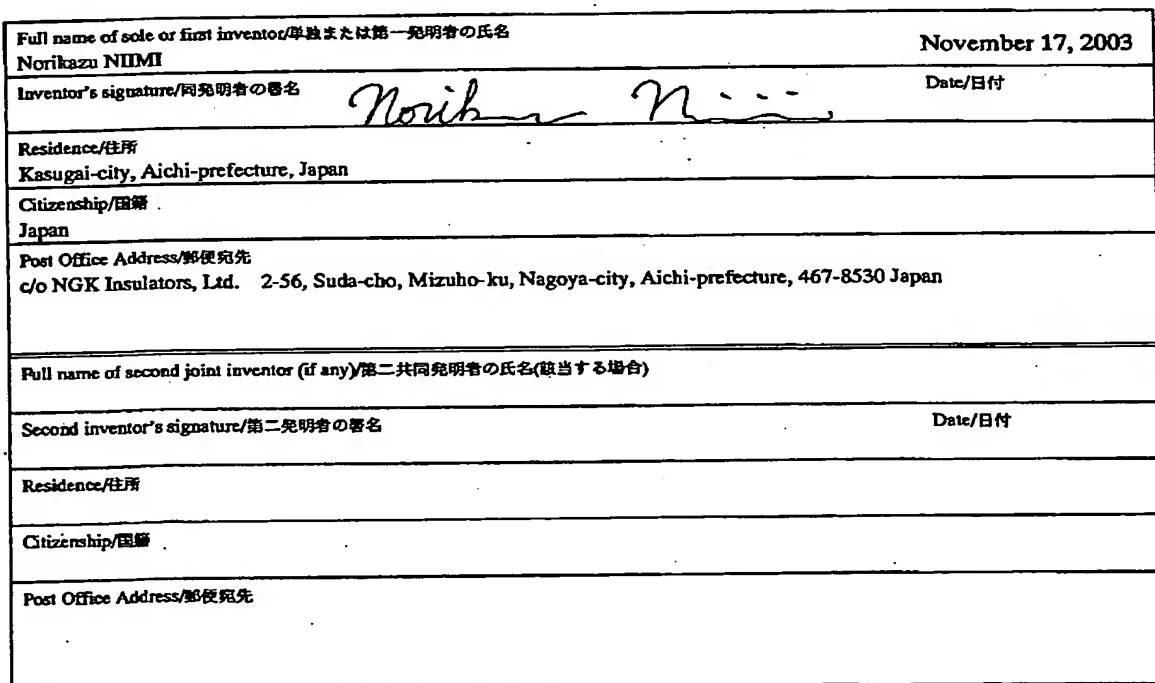 Full name of sole or first inventor/単独または第一発明者の氏名
Norikazu NIIMI
November 17, 2003
Inventor's signature/同発明者の署名
Date/日付
Residence/住所
Kasugai-city, Aichi-prefecture, Japan
Citizenship/国籍
Japan
Post Office Address/郵便宛先
c/o NGK Insulators, Ltd. 2-56, Suda-cho, Mizuho-ku, Nagoya-city, Aichi-prefecture, 467-8530 Japan
Full name of second joint inventor (if any)/第二共同発明者の氏名(該当する場合)
Second inventor's signature/第二発明者の署名
Date/日付
Residence/住所
Citizenship/国籍
Post Office Address/郵便宛先